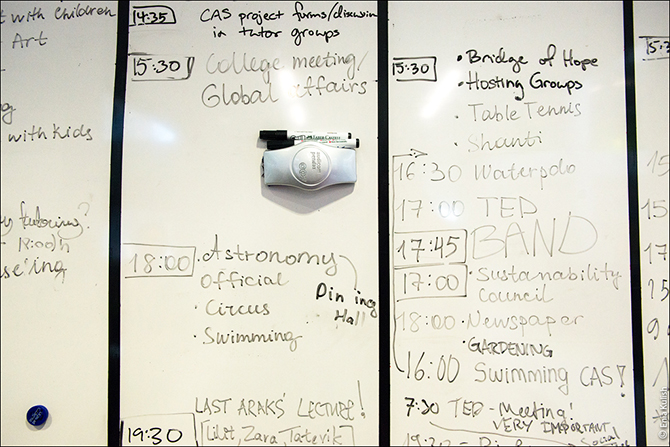 with Children
Art
with kids
tutoring?
14:35 CAS project forms/discussion
in tutor groups
15:30 College meeting/
Global Affairs
18:00 · Astronomy
Official
· Circus
· Swimming
Dining
Hall
LAST ARAKS' LECTURE!
19:30 [Lilit, Zara, Tatevik]
15:30 · Bridge of Hope
· Hosting Groups
· Table Tennis
· Shanti
16:30 Waterpolo
17:00 TED
17:45 BAND
17:00 · Sustainability
Council
18:00 · Newspaper
· GARDENING
16:00 Swimming CAS!
7:30 TED - Meeting!
VERY IMPORTANT